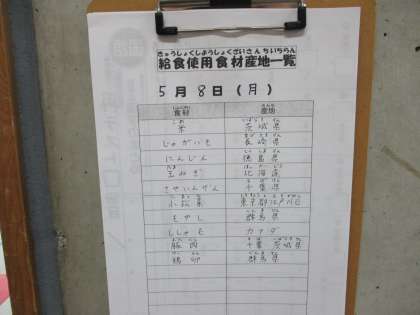 きゅうしょくしようしょくざいさんちいちらん
給食使用食材産地一覧
5月8日（月）
食材 産地
米 茨城県
じゃがいも 長崎県
にんじん 徳島県
玉ねぎ 北海道
さやいんげん 千葉県
小松菜 東京都江戸川区
もやし 群馬県
ししゃも カナダ
豚肉 千葉 茨城県
鶏卵 群馬県